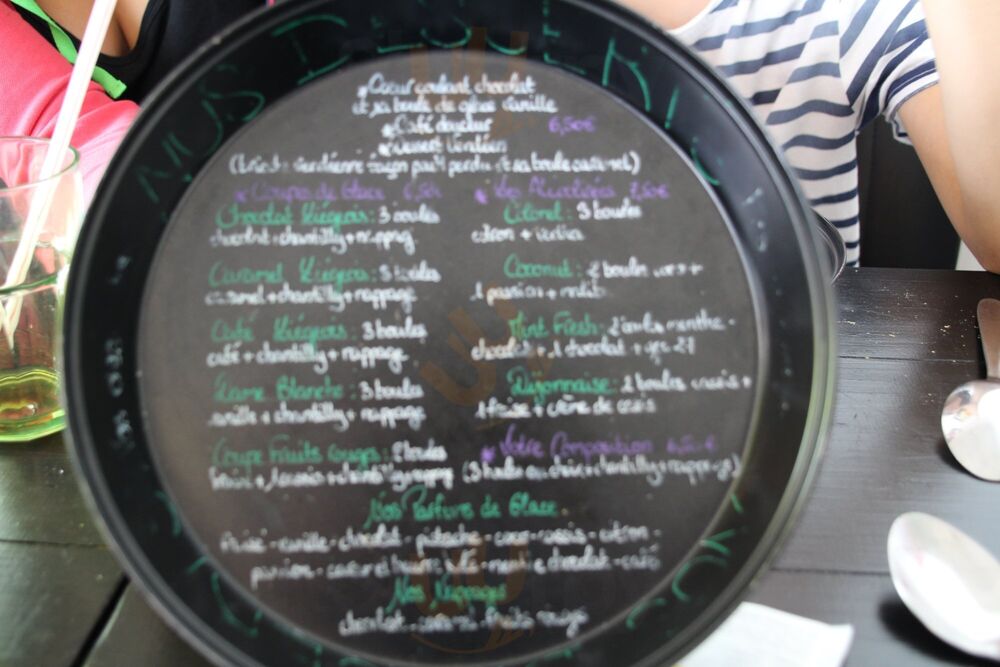 NOS DESSERTS
* Coeur coulant chocolat
et sa boule de glace vanille
* Café douceur 6,50€
* Dessert Vendéen
(brioche vendéenne façon pain perdu et sa boule caramel)
* Coupes de Glace
Chocolat Liégeois : 3 boules
chocolat + chantilly + nappage
Caramel Liégeois : 3 boules
caramel + chantilly + nappage
Café Liégeois : 3 boules
café + chantilly + nappage
Dame Blanche : 3 boules
vanille + chantilly + nappage
Coupe Fruits rouges : boules
+ chantilly + nappage
* Les Alcoolisées
Colonel : 3 boules
citron + vodka
Coconut : 2 boules coco +
1 passion + malibu
Mint Fresh : 2 boules menthe-
chocolat + 1 chocolat + get 27
Dijonnaise : 2 boules cassis +
1 fraise + crème de cassis
* Votre Composition
(3 boules au choix + chantilly + nappage)
Nos Parfums de Glace
fraise - vanille - chocolat - pistache - coco - cassis - citron -
passion - caramel beurre salé - menthe chocolat - café
Nos Nappages
chocolat - caramel - fruits rouges